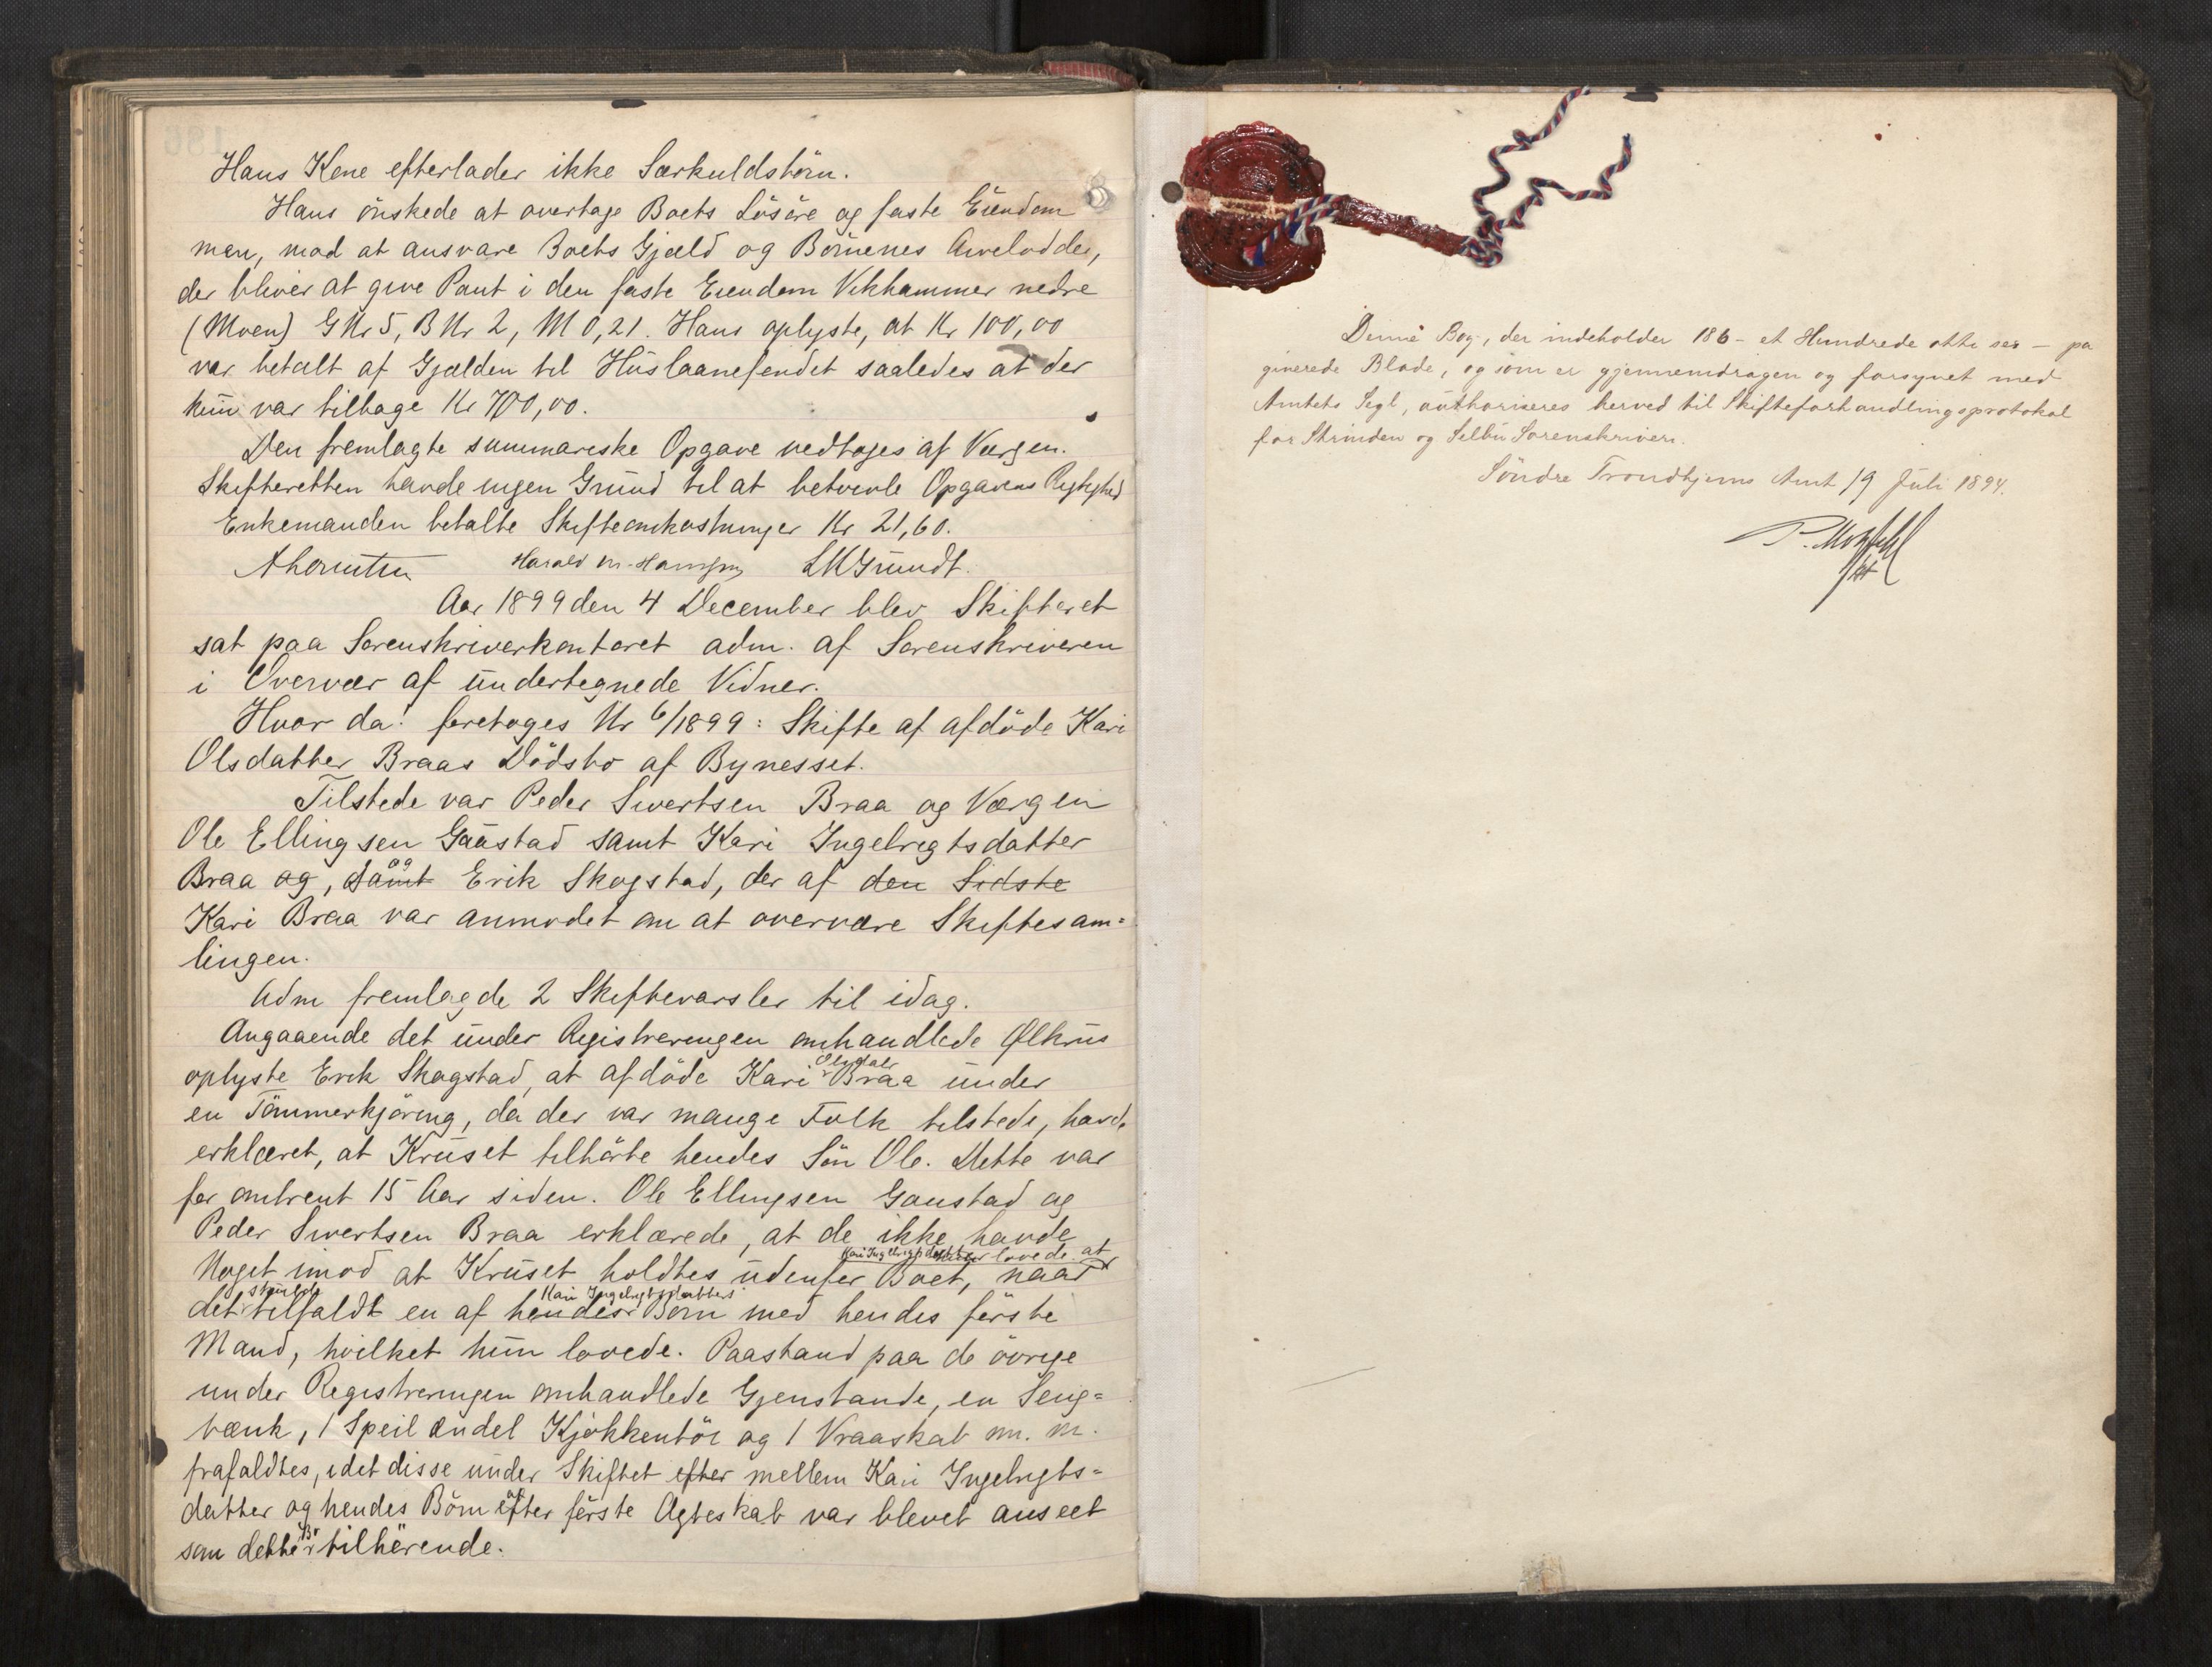 Hans Kone efterlader ikke Særkuldsbörn.
Hans önskede at overtage Boets Lösöre og faste Eiendom
men, mod at ansvare Boets Gjæld og Börnenes Arvelodder,
der bliver at give Pant i den faste Eiendom Vikhammer nedre
(Moen) G Nr 5, B Nr 2, M 0,21. Hans oplyste, at Kr 100,00
var betalt af Gjælden til Huslaanefondet saaledes at der
kun var tilbage Kr 700,00.
Den fremlagte summariske Opgave vedtoges af Værgen.
Skifteretten havde ingen Grund til at betvivle Opgavens Rigtighed
Enkemanden betalte Skifteomkostninger Kr 21,60.
Harald M. LMGrundt.
Aar 1899 den 4 December blev Skifteret
sat paa Sorenskriverkontoret adm. af Sorenskriveren
i Overvær af undertegnede Vidner.
Hvor da: foretoges Nr 6/1899: Skifte af afdöde Kari
Olsdatter Braas Dödsbo af Bynesset.
Tilstede var Peder Sivertsen Braa og Værgen
Ole Ellingsen Gaustad samt Kari Ingebrigtsdatter
Braa og, samt og Erik Skogstad, der af den Sidste
Kari Braa var anmodet om at overvære Skiftesam=
lingen.
Adm fremlagde 2 Skiftevarsler til idag.
Angaaende det under Registreringen omhandlede Ølkrus
oplyste Erik Skogstad, at afdöde Kari Olsdatr Braa under
en Tömmerkjöring, da der var mange Folk tilstede, havde
erklæret, at Kruset tilhörte hendes Sön Ole. Dette var
for omtrent 15 Aar siden. Ole Ellingsen Gaustad og
Peder Sivertsen Braa erklærede, at de ikke havde
Noget imod at Kruset holdtes udenfor Boet, naar Kari Ingebrigtsdatter lovede at
det skulde tilfaldt en af hendes Kari Ingebrigtsdatters Börn med hendes förste
Mand, hvilket hun lovede. Paastand paa de övrige
under Registreringen omhandlede Gjenstande, en Seng=
bænk, 1 Speil endel Kjökkentöi og 1 Vraaskab m. m.
frafaldtes, idet disse under Skiftet efter mellem Kari Ingebrigts=
datter og hendes Börn af efter förste Ægteskab var blevet anseet
som dette tilhörende.
Denne Bog, der indeholder 186 - et Hundrede otti sex - pa
ginerede Blade, og som er gjennemdragen og forsynet med
Amtets Segl, authoriseres herved til Skifteforhandlingsprotokol
for Strinden og Selbu Sorenskriveri.
Söndre Trondhjems Amt 19 Juli 1894.